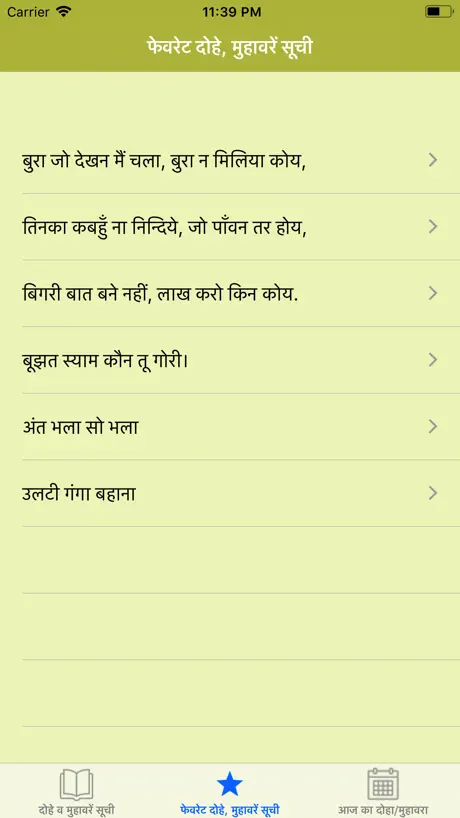 Carrier 11:39 PM
फेवरेट दोहे, मुहावरें सूची
बुरा जो देखन मैं चला, बुरा न मिलिया कोय,
तिनका कबहुँ ना निन्दिये, जो पाँवन तर होय,
बिगरी बात बने नहीं, लाख करो किन कोय.
बूझत स्याम कौन तू गोरी।
अंत भला सो भला
उलटी गंगा बहाना
दोहे व मुहावरें सूची
फेवरेट दोहे, मुहावरें सूची
आज का दोहा/मुहावरा